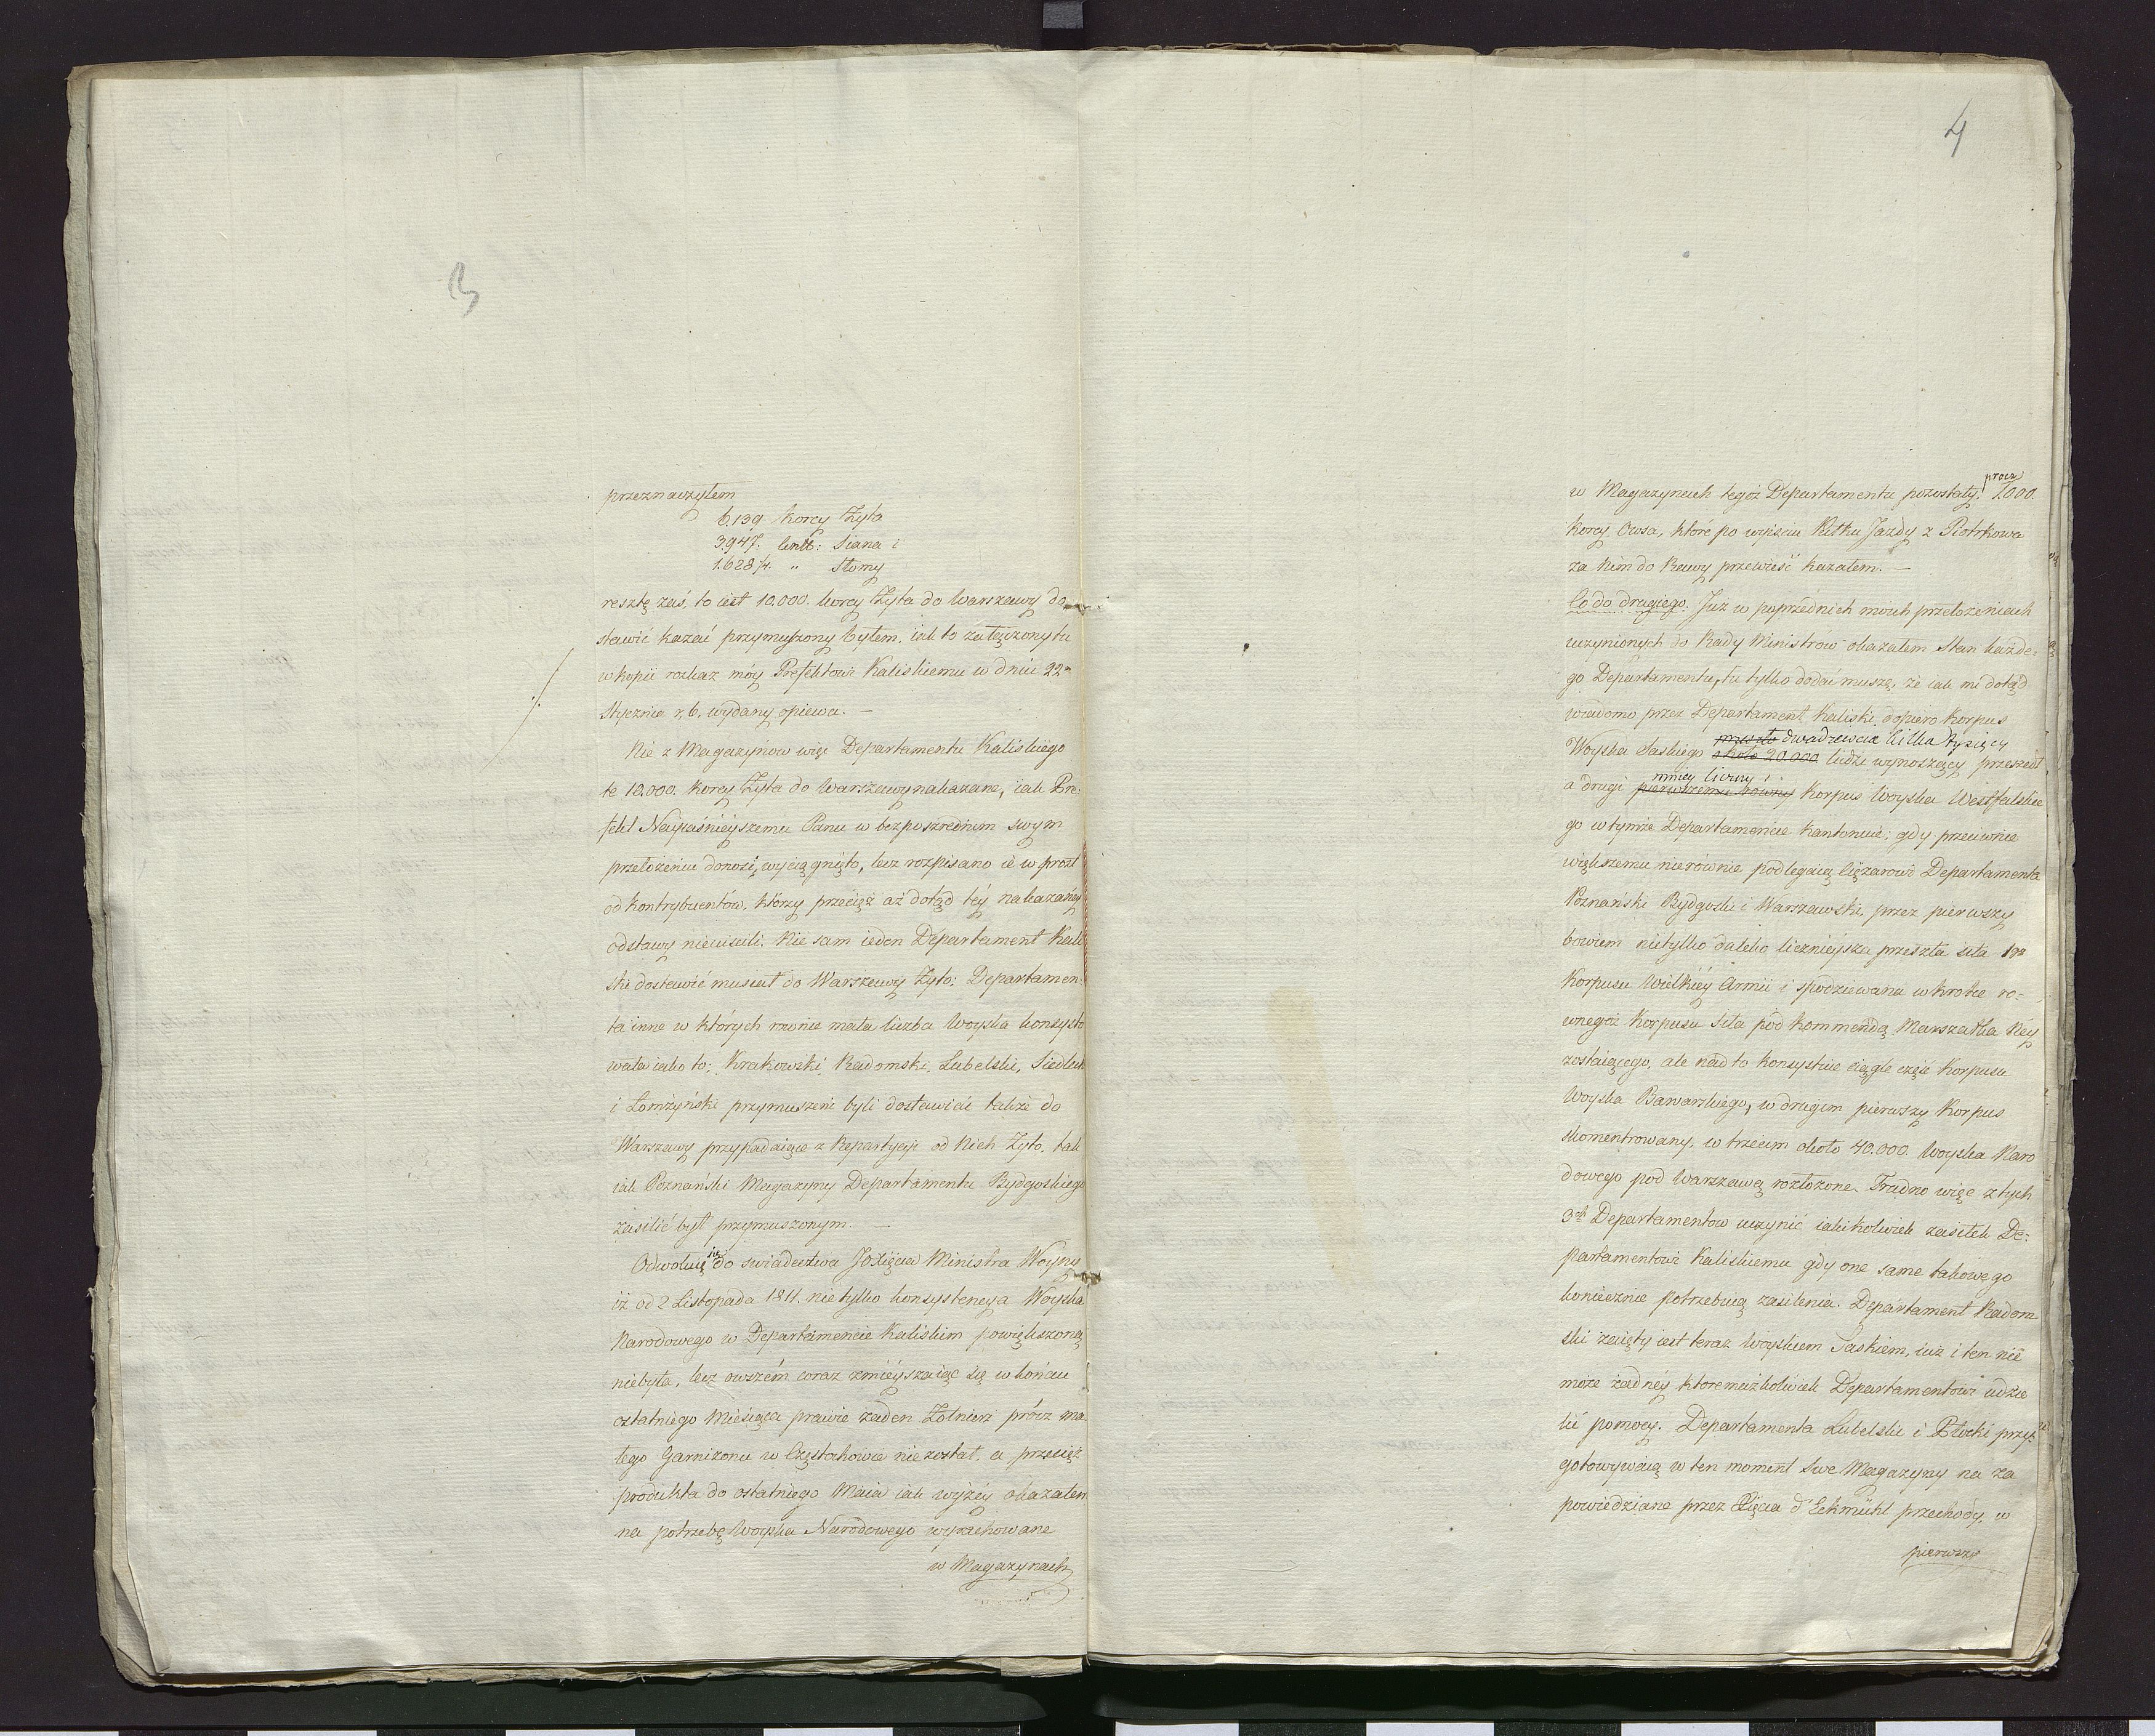 przeznaczyłem
6.139 korcy Żyta
3.947. Cent: Siana i
1.628¾. " Słomy
resztę zaś, to iest 10.000. korcy Żyta do Warszawy do-
stawić kazać przymuszony byłem, iak to załączony tu
w kopii rozkaz móy Prefektowi Kaliskiemu w dniu 22º
Stycznia r. b. wydany opiewa. —
Nie z Magazynow więc Departamentu Kaliskiego
te 10.000. korcy Żyta do Warszawy nakazane, iak Pre-
fekt Nayiaśnieyszemu Panu w bezposzrednim swym
przełożeniu donosi, wyciągnięto, lecz rozpisano ie wprost
od kontrybuentów, którzy przecięż aż dotąd téy nakazanéy
odstawy nieuiscili. Nie sam ieden Departament Kali
ski dostawić musiał do Warszawy Żyto; Departamen-
ta inne w których rownie mała liczba Woyska konsysto
wała iako to; Krakowski, Radomski, Lubelski, Siedlecki
i Łomżyński przymuszeni byli dostawiać także do
Warszawy przypadaiące z Repartycyi od Nich Żyto, tak
iak Poznański Magazyny Departamentu Bydgoskiego
zasilić był przymuszonym. —
Odwołuię się do swiadectwa JOXięcia Ministra Woyny
iż od 2 Listopada 1811. nie tylko konsystencya Woyska
Narodowego w Departamencie Kaliskim powiększoną
niebyła, lecz owszém coraz zmieyszaiąc się w końcu
ostatniego Miesiąca prawie żaden Żołnierz prócz ma-
łego Garnizonu w Częstochowie nie został, a przecięż
produkta do ostatniego Maia iak wyżey okazałem
na potrzebę Woyska Narodowego wyrachowane
w Magazynach
4
w Magazynach tegoż Departamentu pozostały, procz 2000.
korcy Owsa, które po wyisciu Pułku Jazdy z Piotrkowa
za Nim do Rawy przewieść kazałem. —
Co do drugiego. Już w poprzednich moich przełożeniach
uczynionych do Rady Ministrow okazałem Stan każde-
go Departamentu, tu tylko dodać muszę, że iak mi dotąd
wiadomo przez Departament Kaliski dopiero korpus
Woyska Saskiego przeszło dwadziescia kilka tysięcy około 20.000 ludzi wynoszący przeszedł
a drugi mniey liczny pierwszemu rowny Korpus Woyska Westfalskie
go w tymże Departamencie kantonuie; gdy przeciwnie
większemu nierównie podlegaią ciężarowi Departamenta
Poznański Bydgoski i Warszawski, przez pierwszy
bowiem nietylko daleko licznieysza przeszła siła 1go
Korpusu Wielkiéy Armii i spodziewana wkrotce ro-
wnegoż Korpusu siła pod kommendą Marszałka Ney
zostaiącego, ale nadto konsystuie ciągle część Korpusu
Woyska Bawarskiego, w drugim pierwszy Korpus
skoncentrowany, w trzecim około 40.000 Woyska Naro
dowego pod Warszawą rozłożone. Trudno więc z tych
3ch Departamentow uczynić iakikolwiek zasiłek De-
partamentowi Kaliskiemu gdy one same takowego
koniecznie potrzebuią zasilenia. Departament Radom
ski zaięty iest teraz Woyskiem Saskiem, iuż i ten nie
może żadnéy któremużkolwiek Departamentowi udzie
lić pomocy. Departamenta Lubelski i Płocki przy-
gotowywaią w ten moment swe Magazyny na za
powiedziane przez Xięcia d'Eckmühl przechody, w
pierwszy